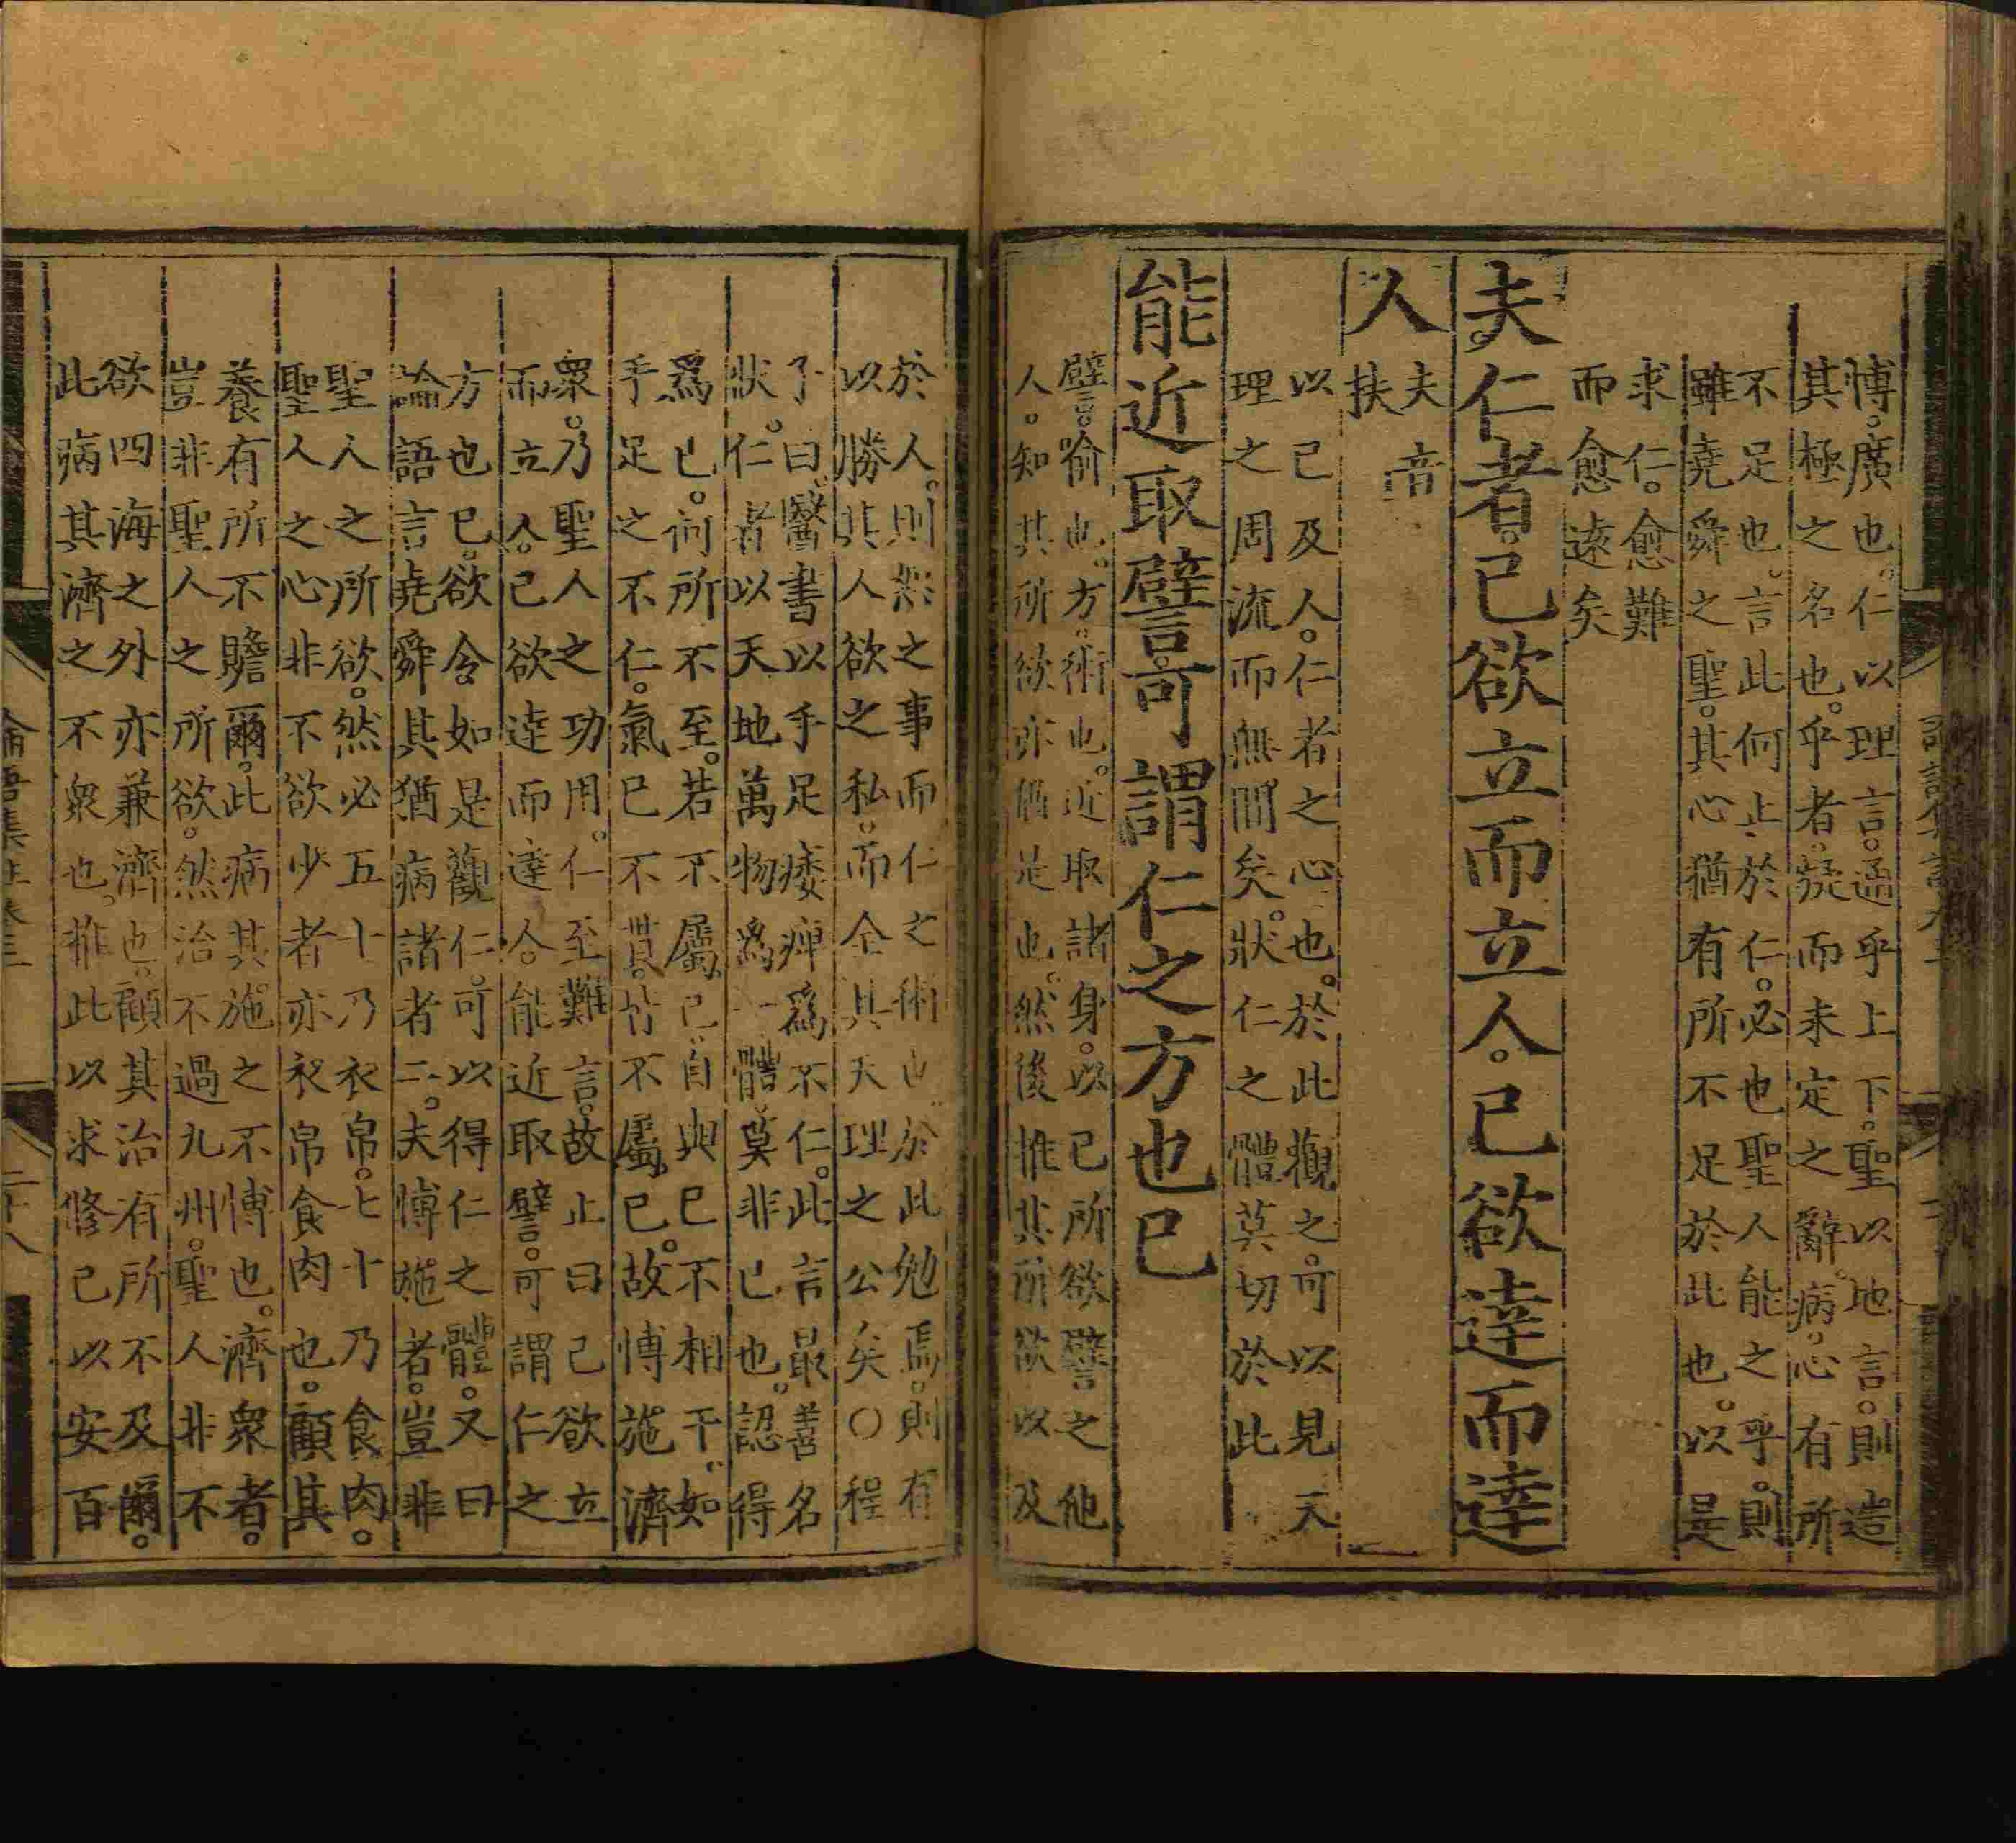 博。廣也。仁以理言。通乎上下。聖以地言。則造
其極之名也。乎者。疑而未定之辭。病。心有所
不足也。言此何止於仁。必也聖人能之乎。則
雖堯舜之聖。其心猶有所不足於此也。以是
求仁。愈難
而愈遠矣
夫仁者。已欲立而立人。已欲達而達
人
夫音
扶
以已及人。仁者之心也。於此觀之。可以見天
理之周流而無間矣。狀仁之體莫切於此
能近取譬。可謂仁之方也已
譬。喻也。方。術也。近取諸身。以已所欲譬之他
人。知其所欲亦猶是也。然後推其所欲以及
於人。則恕之事而仁之術也。於此勉焉。則有
以勝其人欲之私。而全其天理之公矣○程
子曰。醫書以手足痿痺爲不仁。此言最善名
狀。仁者以天地萬物爲一體。莫非已也。認得
爲已。何所不至。若不屬已。自與已不相干。如
手足之不仁。氣已不貫。皆不屬已。故博施濟
衆。乃聖人之功用。仁至難言。故止曰已欲立
而立人。已欲達而達人。能近取譬。可謂仁之
方也已。欲令如是觀仁。可以得仁之體。又曰
論語言堯舜其猶病諸者二。夫博施者。豈非
聖人之所欲。然必五十乃衣帛。七十乃食肉。
聖人之心非不欲少者亦衣帛食肉也。顧其
養有所不贍爾。此病其施之不博也。濟衆者。
豈非聖人之所欲。然治不過九州。聖人非不
欲四海之外亦兼濟也。顧其治有所不及爾。
此病其濟之不衆也。推此以求修已以安百